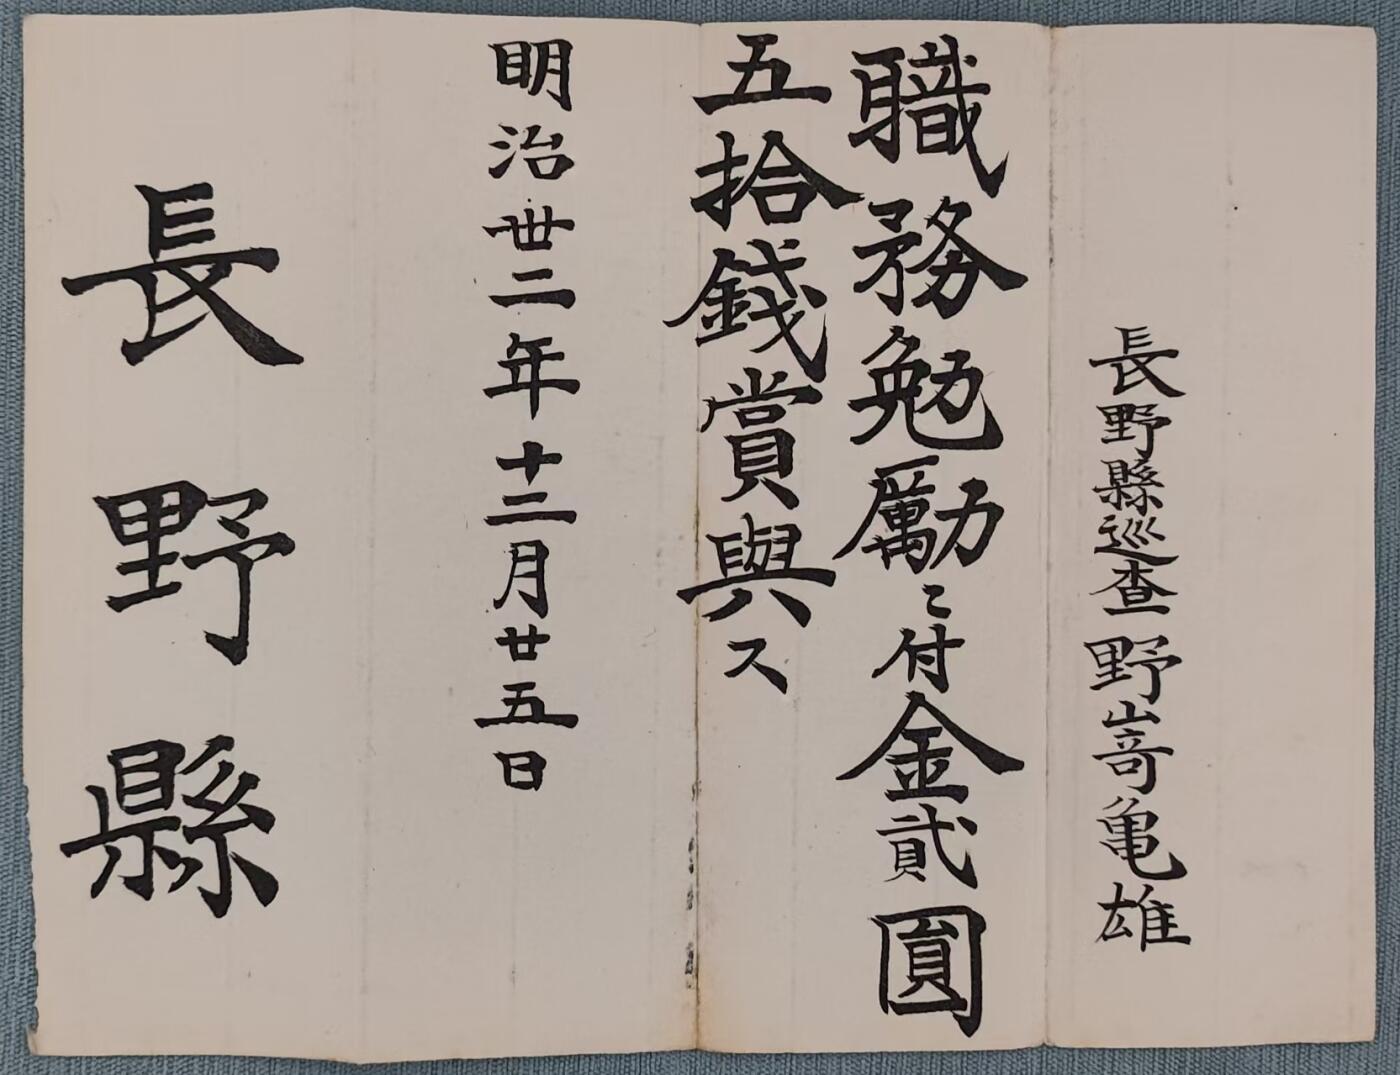 長野縣巡査野嵜亀雄
職務勉励ニ付金貳圓
五拾錢賞與ス
明治卅二年十二月廿五日
長野縣